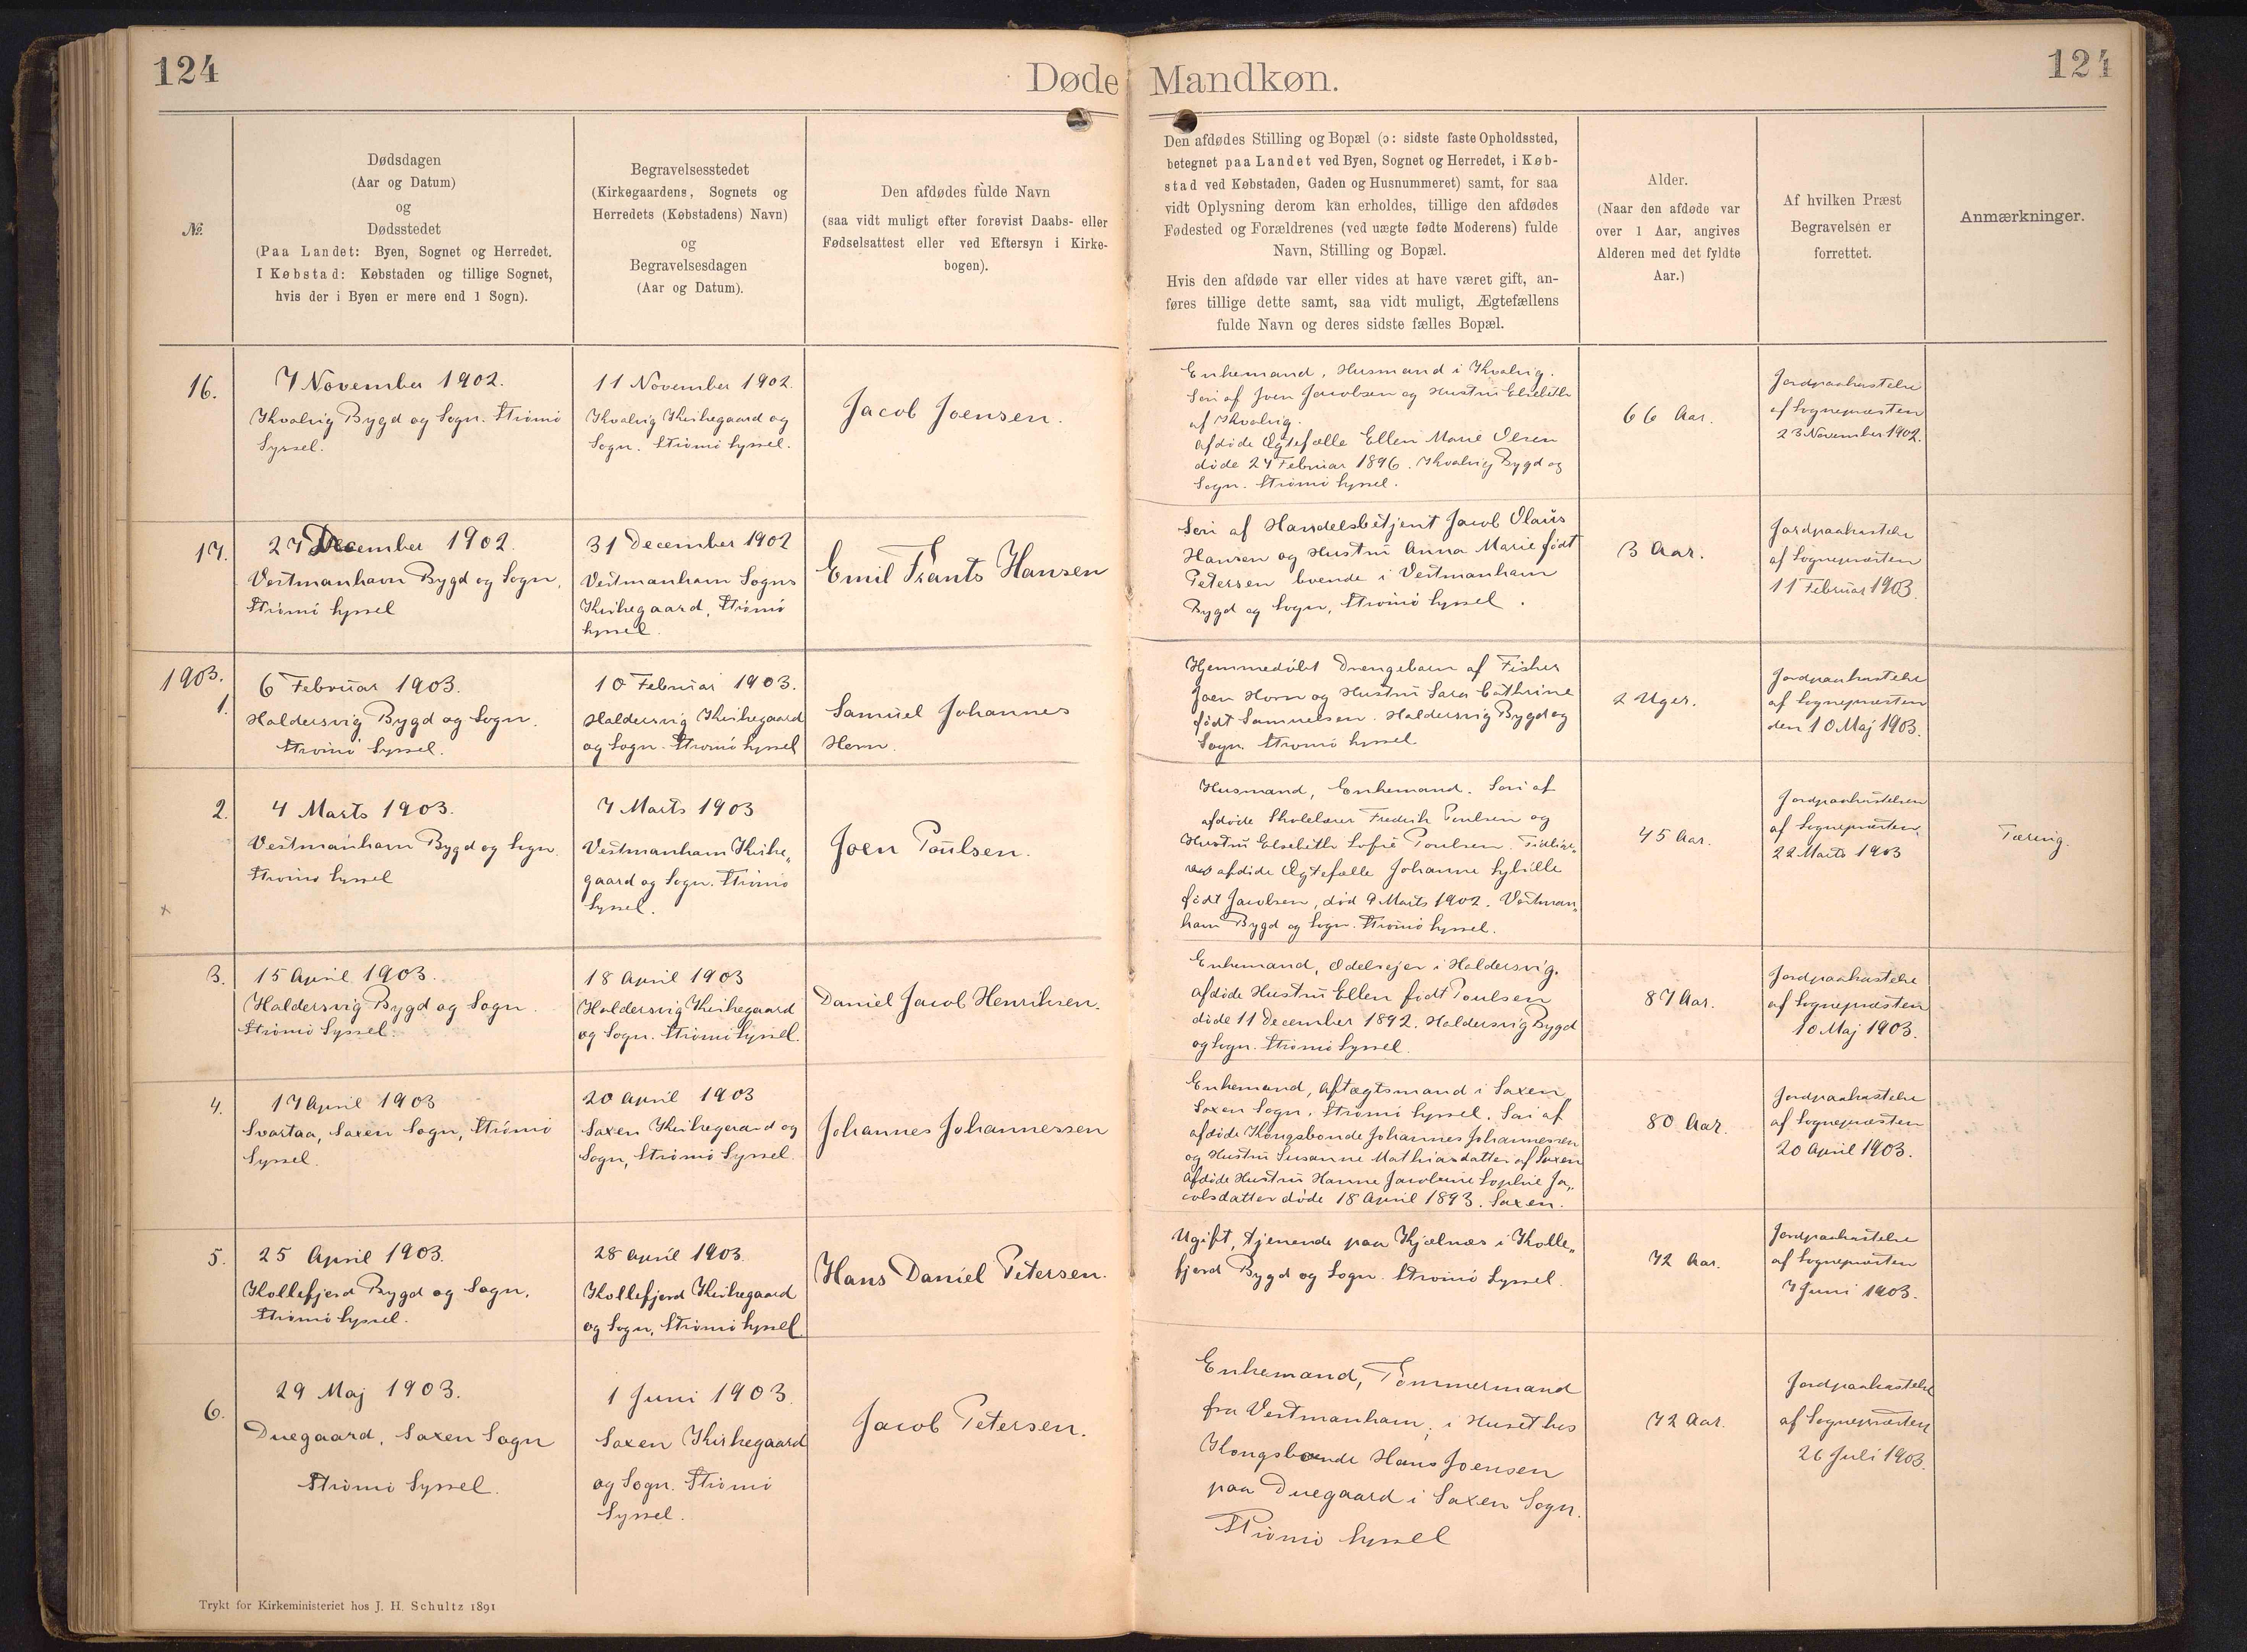 124
Døde Mandkøn.
124
№
Dødsdagen
(Aar og Datum)
og
Dødsstedet
(Paa Landet: Byen, Sognet og Herredet.
I Købstad: Købstaden og tillige Sognet,
hvis der i Byen er mere end 1 Sogn).
Begravelsesstedet
(Kirkegaardens, Sognets og
Herredets (Købstadens) Navn)
og
Begravelsesdagen
(Aar og Datum).
Den afdødes fulde Navn
(saa vidt muligt efter forevist Daabs- eller
Fødselsattest eller ved Eftersyn i Kirke-
bogen).
Den afdødes Stilling og Bopæl (ɔ: sidste faste Opholdssted,
betegnet paa Landet ved Byen, Sognet og Herredet, i Køb-
stad ved Købstaden, Gaden og Husnummeret) samt, for saa
vidt Oplysning derom kan erholdes, tillige den afdødes
Fødested og Forældrenes (ved uægte fødte Moderens) fulde
Navn, Stilling og Bopæl.
Hvis den afdøde var eller vides at have været gift, an-
føres tillige dette samt, saa vidt muligt, Ægtefællens
fulde Navn og deres sidste fælles Bopæl.
Alder.
(Naar den afdøde var
over 1 Aar, angives
Alderen med det fyldte
Aar.)
Af hvilken Præst
Begravelsen er
forrettet.
Anmærkninger.
16.
7 November 1902.
Kvalvig Bygd og Sogn. Strömö
Syssel.
11 November 1902.
Kvalvig Kirkegaard og
Sogn. Strömö Syssel.
Jacob Joensen.
Enkemand, Husmand i Kvalvig.
Søn af Joen Jacobsen og Hustru Elsebeth
af Kvalvig.
afdöde Ægtefælle Ellen Marie Olsen
döde 27 Februar 1896. Kvalvig Bygd og
Sogn. Strömö Syssel.
66 Aar.
Jordpaakastelse
af Sognepræsten
23 November 1902.
17.
27 December 1902.
Vestmanhavn Bygd og Sogn,
Strömö Syssel
31 December 1902
Vestmanhavn Sogns
Kirkegaard, Strömö
Syssel.
Emil Frants Hansen
Søn af Handelsbetjent Jacob Olaus
Hansen og Hustru Anna Marie født
Petersen boende i Vestmanhavn
Bygd og Sogn, Strömö Syssel.
3 Aar.
Jordpaakastelse
af Sognepræsten
11 Februar 1903.
1903.
1.
6 Februar 1903.
Haldersvig Bygd og Sogn.
Strömö Syssel.
10 Februar 1903.
Haldersvig Kirkegaard
og Sogn. Strömö Syssel
Samuel Johannes
Horn.
Hjemmedöbt Drengebarn af Fisker
Joen Horn og Hustru Sara Cathrine
født Samuelsen. Haldersvig Bygd og
Sogn. Strömö Syssel.
2 Uger.
Jordpaakastelse
af Sognepræsten
den 10 Maj 1903.
2.
4 Marts 1903.
Vestmanhavn Bygd og Sogn.
Strömö Syssel
7 Marts 1903
Vestmanhavn Kirke„
gaard og Sogn. Strömö
Syssel.
Joen Poulsen.
Husmand, Enkemand. Søn af
afdöde Skolelærer Frederik Poulsen og
Hustru Elsebeth Sofie Poulsen.
afdöde Ægtefælle Johanne Sybille
født Jacobsen, död 9 Marts 1902. Vestman„
havn Bygd og Sogn. Strömö Syssel.
45 Aar.
Jordpaakastelsen
af Sognepræsten,
22 Marts 1903
Tæring.
x
3.
15 April 1903.
Haldersvig Bygd og Sogn.
Strömö Syssel.
18 April 1903
Haldersvig Kirkegaard
og Sogn. Strömö Syssel.
Daniel Jacob Henriksen.
Enkemand, Odelsejer i Haldersvig.
Afdöde Hustru Ellen født Poulsen
döde 11 December 1892. Haldersvig Bygd
og Sogn. Strömö Syssel.
87 Aar.
Jordpaakastelse
af Sognepræsten
10 Maj 1903.
4.
17 April 1903
Svartaa, Saxen Sogn, Strömö
Syssel.
20 April 1903
Saxen Kirkegaard og
Sogn, Strömö Syssel.
Johannes Johannessen
Enkemand, Aftægtsmand i Saxen,
Saxen Sogn. Strömö Syssel. Søn af
afdöde Kongsbonde Johannes Johannessen
og Hustru Susanne Mathiasdatter af Saxen
Afdöde Hustru Hanne Jacobine Sophie Ja„
cobsdatter döde 18 April 1893. Saxen.
80 Aar.
Jordpaakastelse
af Sognepræsten
20 April 1903.
5.
25 April 1903.
Kollefjord Bygd og Sogn,
Strömö Syssel.
28 April 1903.
Kollefjord Kirkegaard
og Sogn, Strömö Syssel
Hans Daniel Petersen.
Ugift, tjenende paa Kjælnæs i Kolle„
fjord Bygd og Sogn. Strömö Syssel.
72 Aar.
Jordpaakastelse
af Sognepræsten
7 Juni 1903.
6.
29 Maj 1903.
Duegaard, Saxen Sogn
Strömö Syssel.
1 Juni 1903.
Saxen Kirkegaard
og Sogn. Strömö
Syssel.
Jacob Petersen.
Enkemand, Tømmermand
fra Vestmanhavn, i Huset hos
Kongsbonde Hans Joensen
paa Duegaard i Saxen Sogn.
Strömö Syssel
72 Aar.
Jordpaakastelse
af Sognepræsten
26 Juli 1903.
Trykt for Kirkeministeriet hos J. H. Schultz 1891